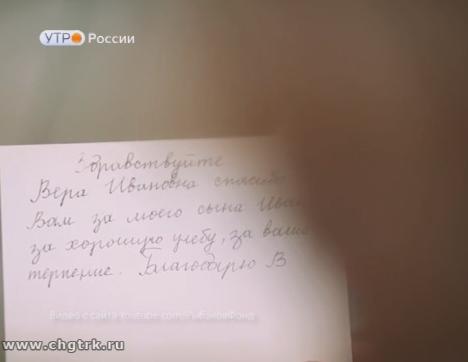 УТРО России
Здравствуйте
Вера Ивановна спасибо
Вам за моего сына Иван
за хорошую учебу, за ваше
терпение. Благодарю В
Видео с сайта youtube.com/
www.chgtrk.ru